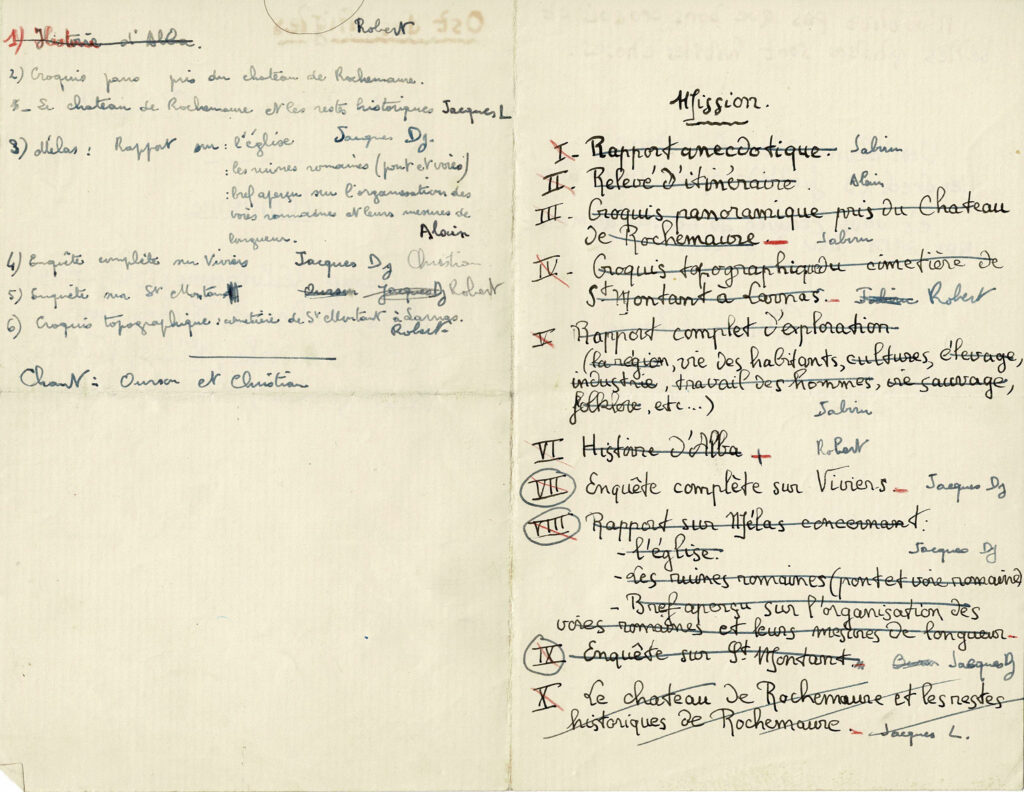 Robert
1) Histoire d'Alba.
2) Croquis pano pris du chateau de Rochemaure.
Le chateau de Rochemaure et les restes historiques Jacques L
3) Mélas : Rapport sur : l'église Jacques Dj.
: les ruines romaines (pont et voies)
: bref aperçu sur l'organisation des
voies romaines et leurs mesures de
longueur. Alain
4) Enquête complète sur Viviers Jacques Dj Christian
5) Enquête sur St Montant Ourson Jacques Dj Robert
6) Croquis topographique : cimetière de St Montant à Larnas.
Robert
Chant : Ourson et Christian
Mission.
I - Rapport anecdotique. Sabim
II - Relevé d'itinéraire. Alain
III - Croquis panoramique pris du Chateau
de Rochemaure - Sabim
IV - Croquis topographique du cimetière de
St Montant à Larnas. - Robert
V - Rapport complet d'exploration
(la région, vie des habitants, cultures, élevage,
industrie, travail des hommes, vie sauvage,
folklore, etc...)
Sabim
VI Histoire d'Alba + Robert
VII Enquête complète sur Viviers - Jacques Dj
VIII Rapport sur Mélas concernant :
- l'église. Jacques Dj
- Les ruines romaines (pont et voie romaine)
- Bref aperçu sur l'organisation des
voies romaines et leurs mesures de longueur -
IX - Enquête sur St Montant - Ourson Jacques Dj
X - Le chateau de Rochemaure et les restes
historiques de Rochemaure. - Jacques L.